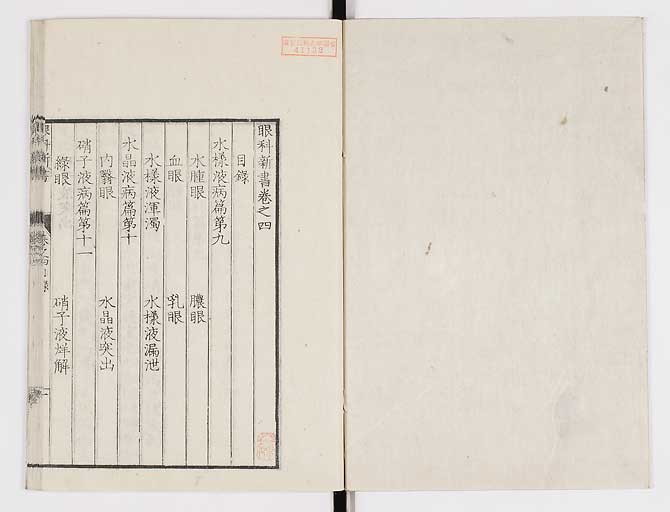 眼科新書卷之四
目錄
水樣液病篇第九
水腫眼 膿眼
血眼 乳眼
水樣液渾濁 水樣液漏泄
水晶液病篇第十
內翳眼 水晶液突出
硝子液病篇第十一
綠眼 硝子液烊解
眼科新書
卷之四目錄
41138